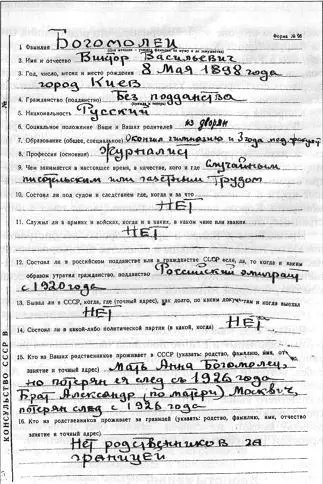 Форма № 96
1 Фамилия Богомолец
2. Имя и отчество Виктор Васильевич
3. Год, число, месяц и место рождения 8 Мая 1898 года
город Киев
4. Гражданство (подданство) Без подданства
5. Национальность Русский
6. Социальное положение Ваши и Ваших родителей из дворян
7. Образование (общее, специальное) Окончил гимназию и 3 года мед. факульт
8. Профессия (основная) Журналист
9. Чем занимается в настоящее время, в качестве, кого и где Случайным
писательским или газетным трудом
10. Состоял ли под судом и следствием где, когда и за что
НЕТ
11. Служил ли в армиях и войсках, когда и в каких, в каком чине или звании
НЕТ
12. Состоял ли в российском подданстве или в гражданстве СССР если, да, то когда и каким
образом утратил гражданство, подданство Российский эмигрант
с 1920 года
13. Бывал ли в СССР, когда, где (точный адрес), как долго, по каким документам и когда выехал
НЕТ
14. Состоял ли в какой-либо политической партии (в какой, когда) НЕТ
15. Кто из Ваших родственников проживает в СССР (указать: родство, фамилию, имя, от-
чество занятие и точный адрес) Мать Анна Богомолец,
но потерян ея след с 1926 года
Брат Александр (по матери) Москвич,
потерян след с 1926 года
16. Кто из родственников проживает за границей (указать: родство, фамилию, имя, отчество
занятие и точный адрес)
Нет родственников за
границей
КОНСУЛЬСТВО СССР В
№